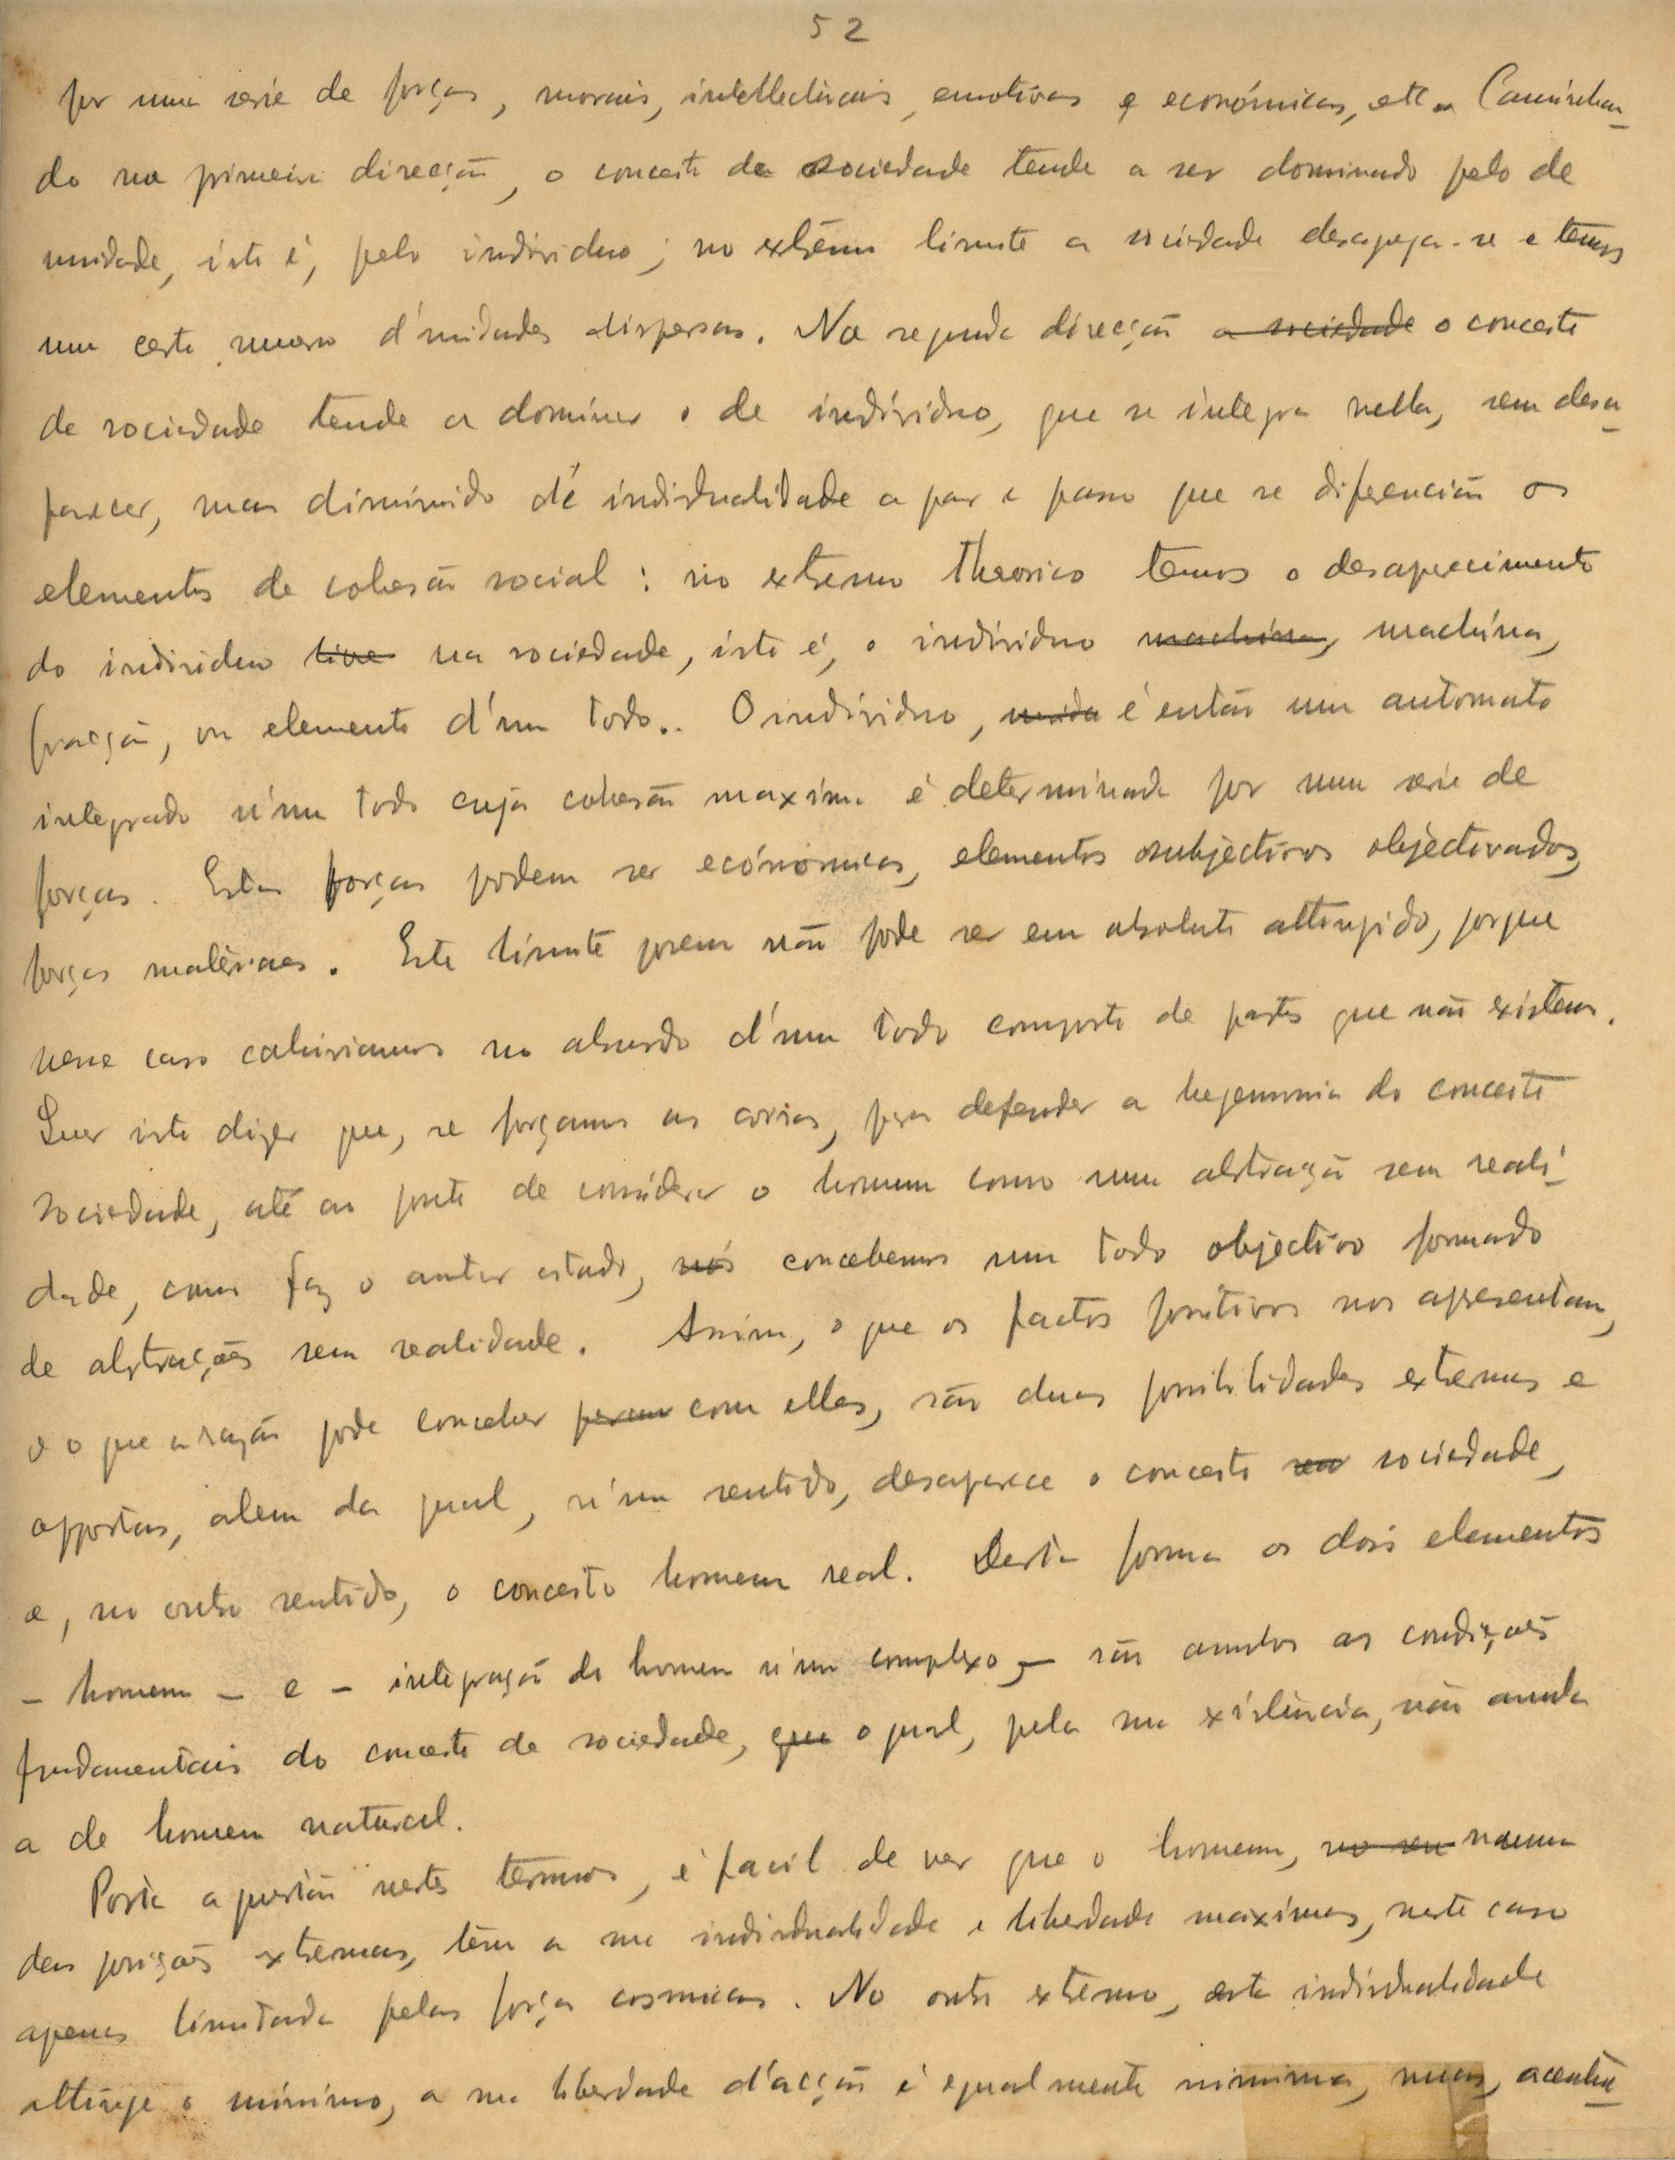 52
por uma serie de forças, morais, intellectuais, emotivas e económicas, etc. Caminhan-
do na primeira direcção, o conceito de sociedade tende a ser dominado pelo de
unidade, isto é, pelo individuo; no extremo limite a sociedade desagrega-se e temos
um certo numero d'unidades dispersas. Na segunda direcção a sociedade o conceito
de sociedade tende a dominar o de indivíduo, que se integra nella, sem desa-
parecer, mas diminuido de individualidade a par e passo que se diferenciam os
elementos de cohesão social: no extremo theorico temos o desaparecimento
do individuo livre na sociedade, isto é, o indivíduo machina, machina,
fracção, ou elemento d'um todo.. O indivíduo, é então um automato
integrado n'um todo cuja cohesão maxima é determinada por uma serie de
forças. Estas forças podem ser económicas, elementos subjectivos objectivados,
forças materiaes. Este limite porem não pode ser em absoluto attingido, porque
nesse caso cahiriamos no absurdo d'um todo composto de partes que não existem.
Quer isto dizer que, se forçamos as coisas, para defender a hegemonia do conceito
sociedade, até ao ponto de considerar o homem como uma abstração sem reali-
dade, como faz o autor citado, nós concebemos um todo objectivo formado
de abstrações sem realidade. Assim, o que os factos positivos nos apresentam,
e o que a razão pode conceber com elles, são duas possibilidades extremas e
oppostas, alem da qual, n'um sentido, desaparece o conceito sociedade,
e, no outro sentido, o conceito homem real. Desta forma os dois elementos
- homem - e - integração do homem n'um complexo - são ambos as condições
fundamentais do conceito de sociedade, que o qual, pela sua existência, não anula
a de homem natural.
Posta a questão nestes termos, é facil de ver que o homem, no seu numa
das posições extremas, tem a sua individualidade e liberdade maximas, neste caso
apenas limitada pelas forças cosmicas. No outro extremo, esta individualidade
attinge o mínimo, a sua liberdade d'acção é egualmente minima, mas, accentu-